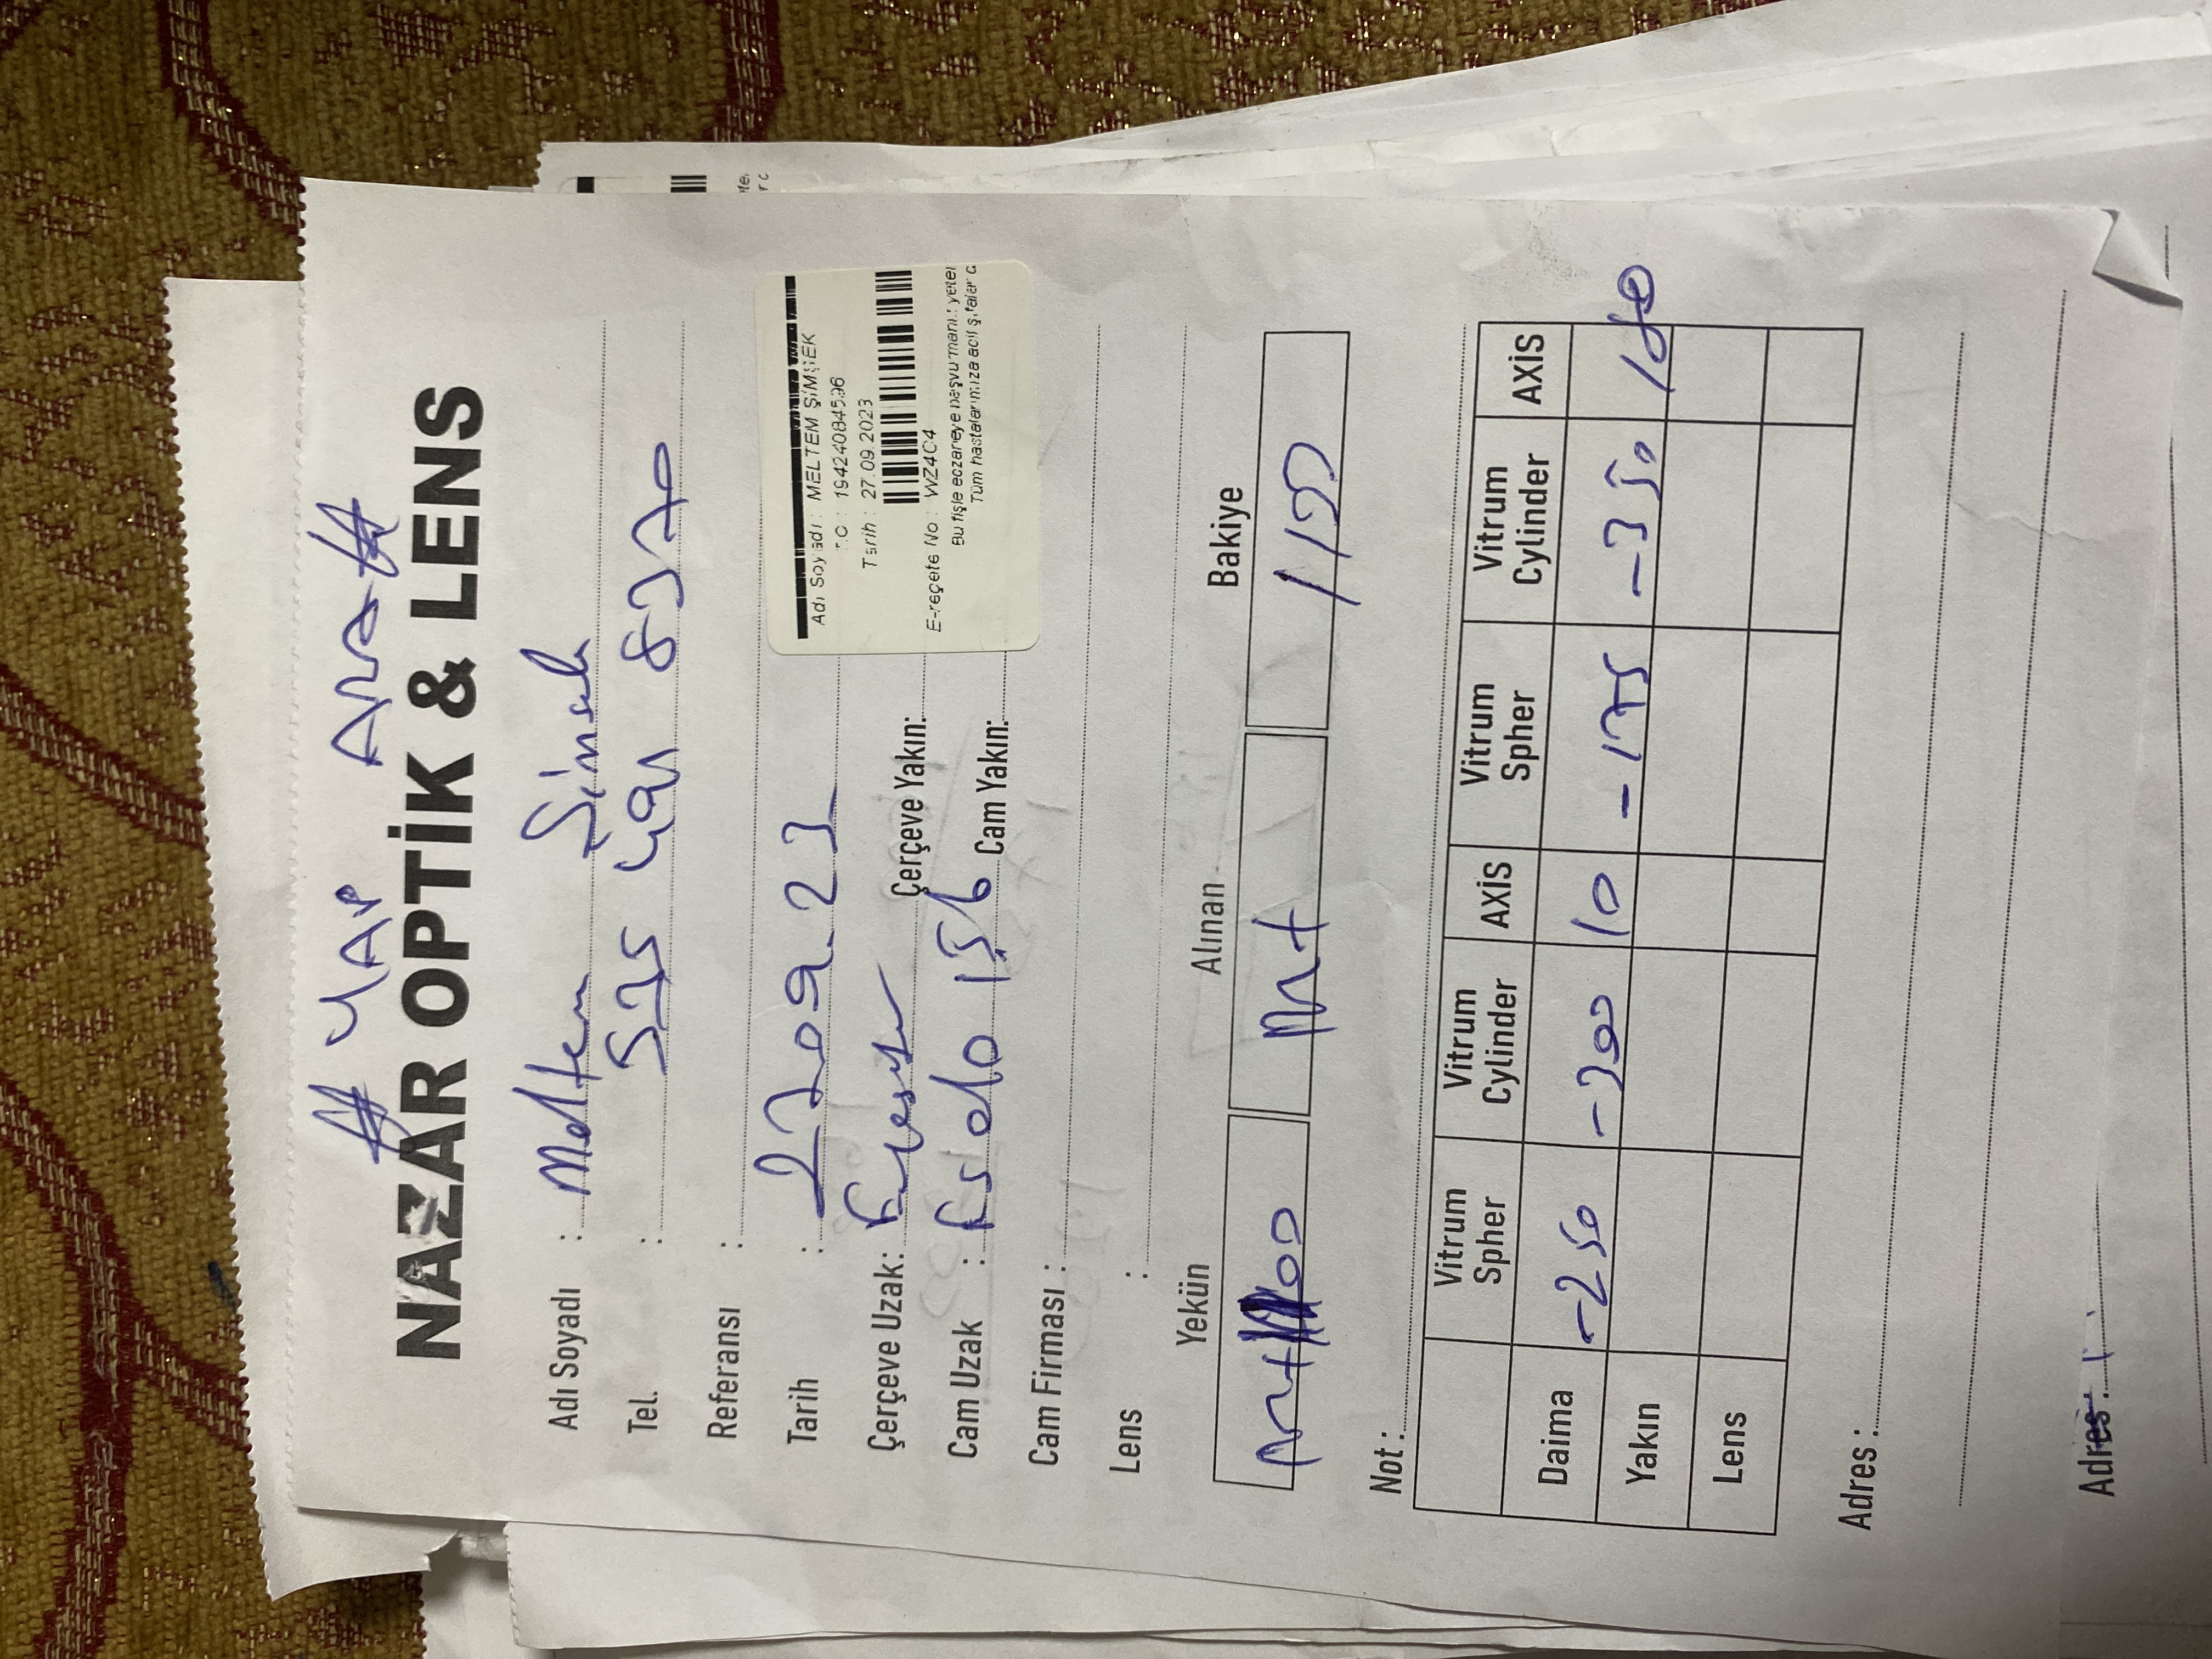 # YAP ARA #
NAZAR OPTİK & LENS
Adı Soyadı : Meltem Şimşek
Tel. : 535 491 8370
Referansı :
Tarih : 27.09.23
Çerçeve Uzak: Çerçeve Yakın:
Cam Uzak : 156 Cam Yakın:
Cam Firması :
Lens :
Adı Soyadı : MELTEM ŞİMŞEK
T.C : 19424084596
Tarih : 27.09.2023
E-reçete No : WZ4C4
Bu fişle eczaneye başvurmanız yeter
Tüm hastalarımıza acil şifalar d
Yekün Alınan Bakiye
Mt 00 Mt 1100
Not :
Vitrum Spher Vitrum Cylinder AXİS Vitrum Spher Vitrum Cylinder AXİS
Daima -250 -300 10 -175 -350 180
Yakın
Lens
Adres :
Adres :